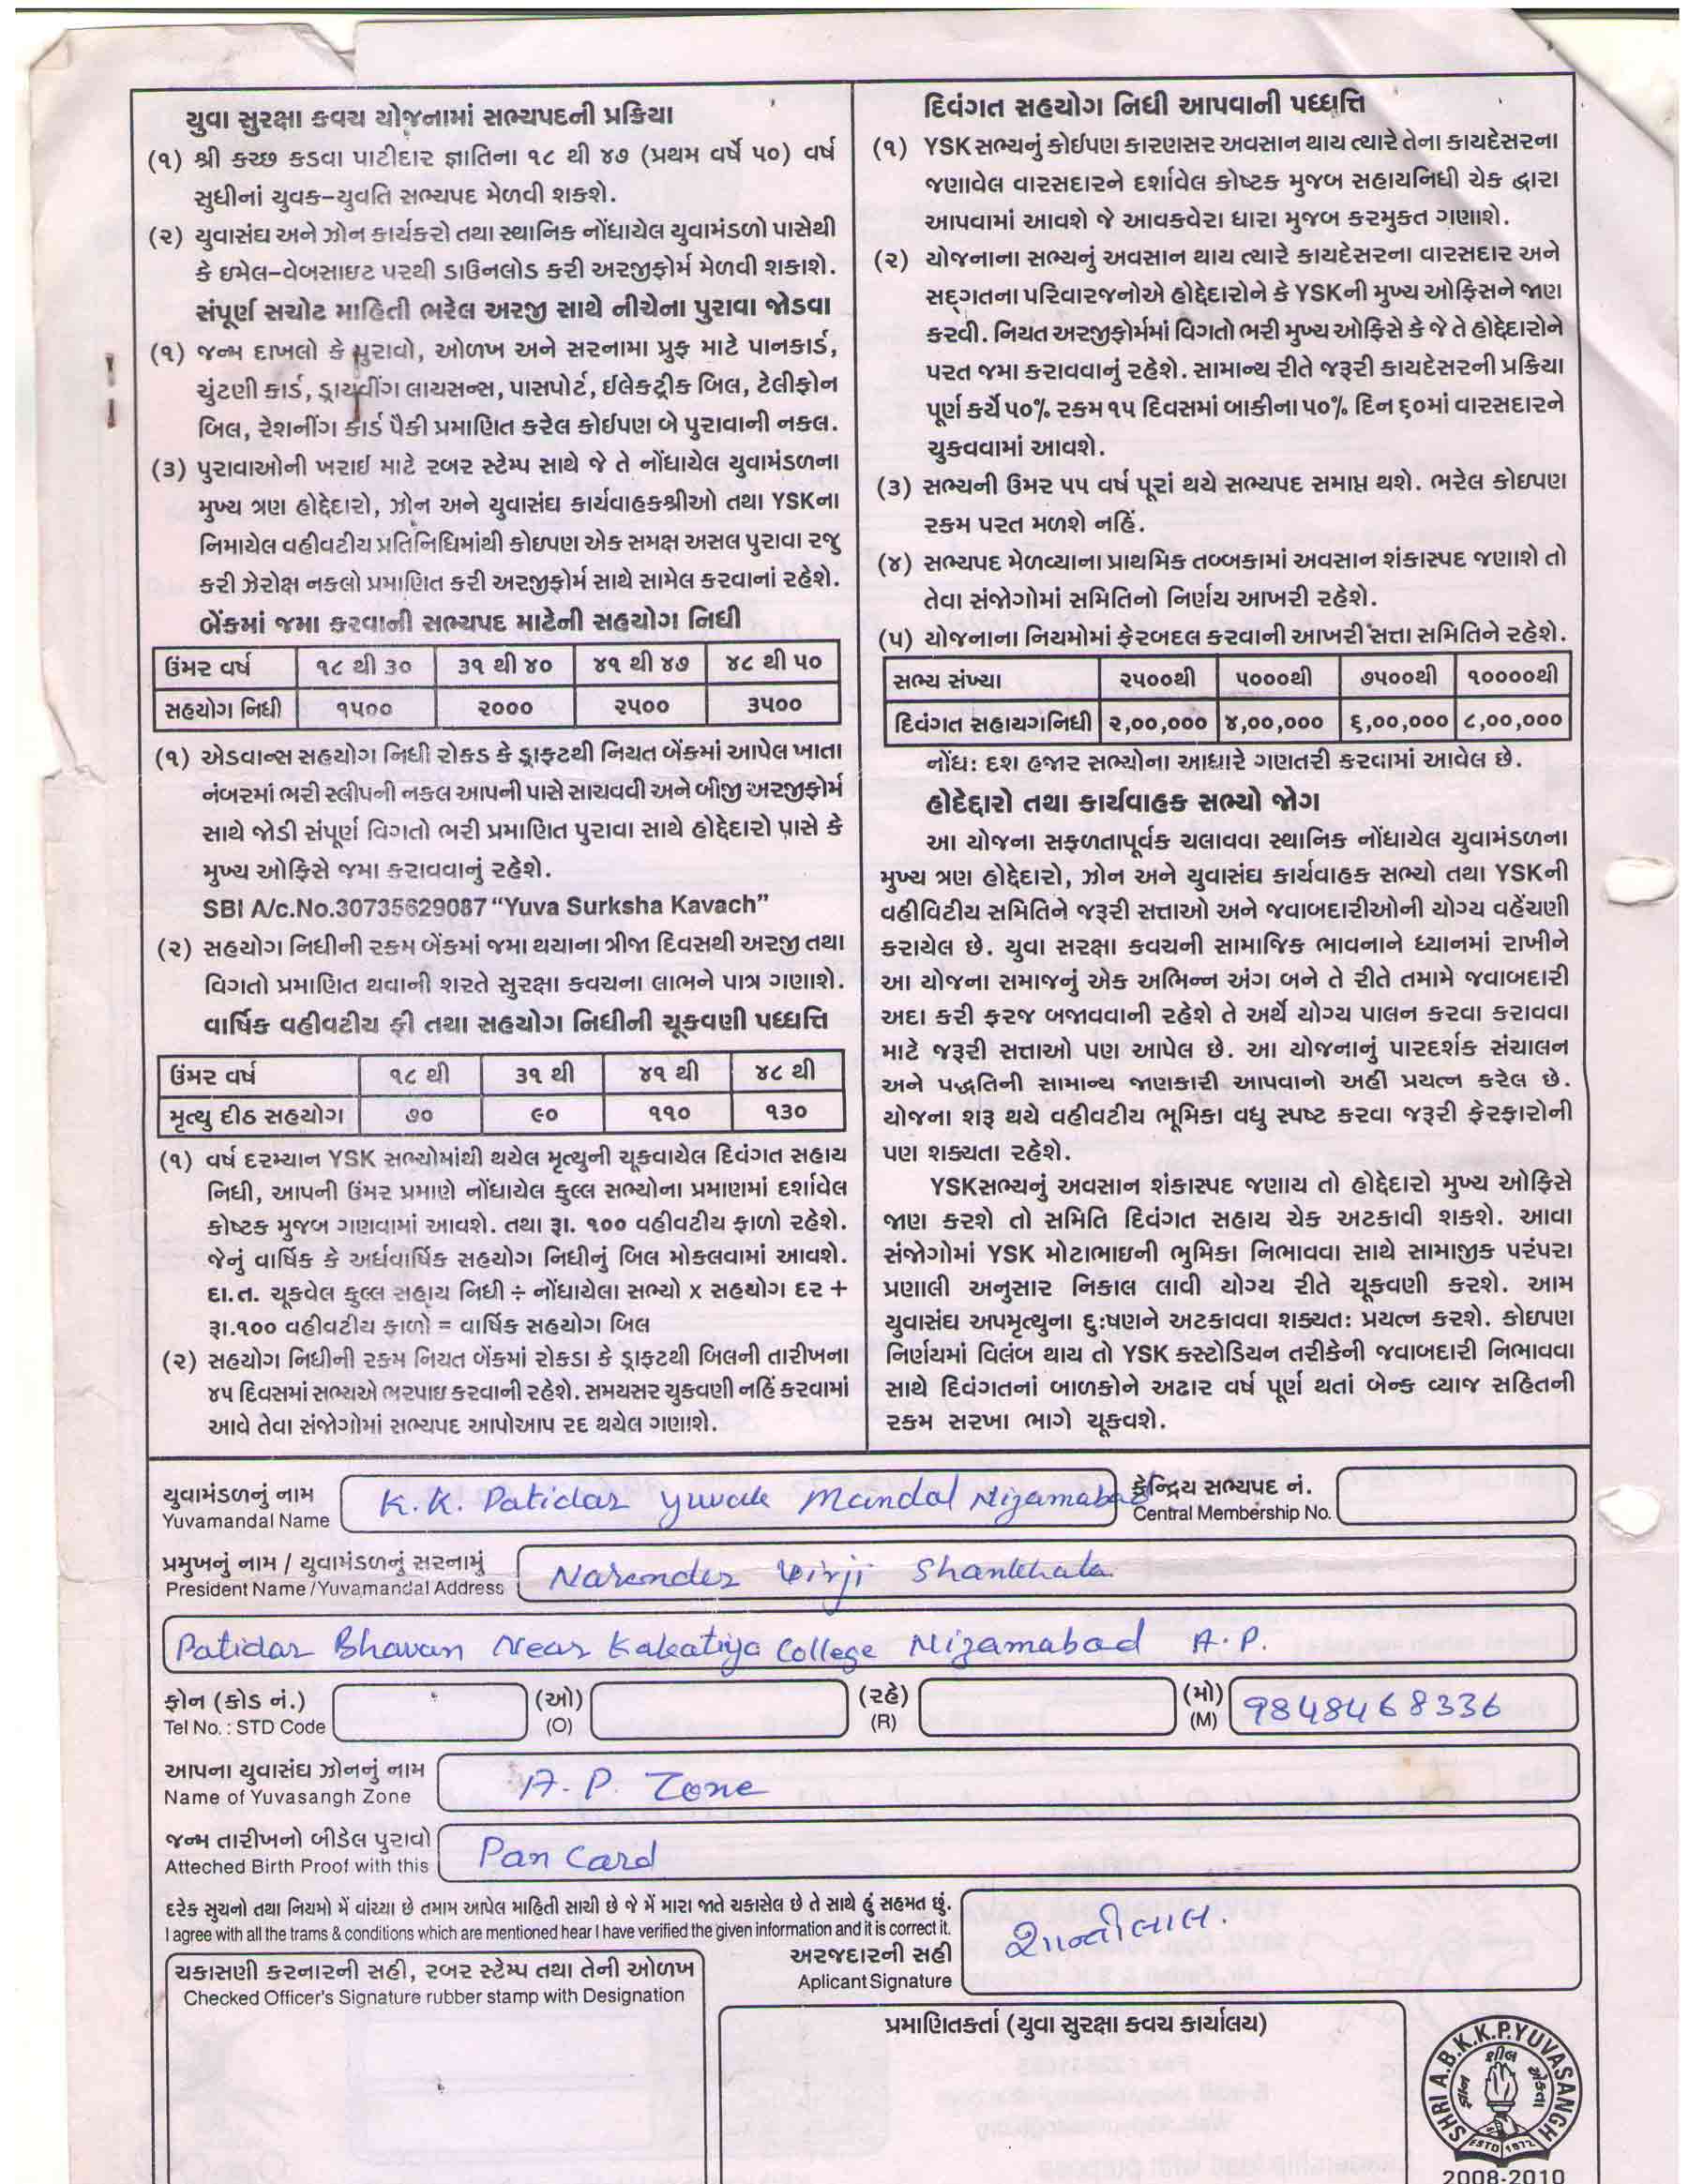 યુવા સુરક્ષા કવચ યોજનામાં સભ્યપદની પ્રક્રિયા
(૧) શ્રી કચ્છ કડવા પાટીદાર જ્ઞાતિના ૧૮ થી ૪૭ (પ્રથમ વર્ષે ૫૦) વર્ષ
સુધીનાં યુવક-યુવતિ સભ્યપદ મેળવી શકશે.
(૨) યુવાસંઘ અને ઝોન કાર્યકરો તથા સ્થાનિક નોંધાયેલ યુવામંડળો પાસેથી
કે ઇમેલ-વેબસાઇટ પરથી ડાઉનલોડ કરી અરજીફોર્મ મેળવી શકાશે.
સંપૂર્ણ સચોટ માહિતી ભરેલ અરજી સાથે નીચેના પુરાવા જોડવા
(૧) જન્મ દાખલો કે પુરાવો, ઓળખ અને સરનામા પ્રુફ માટે પાનકાર્ડ,
ચુંટણી કાર્ડ, ડ્રાયવીંગ લાયસન્સ, પાસપોર્ટ, ઈલેક્ટ્રીક બિલ, ટેલીફોન
બિલ, રેશનીંગ કાર્ડ પૈકી પ્રમાણિત કરેલ કોઈપણ બે પુરાવાની નકલ.
(૩) પુરાવાઓની ખરાઇ માટે રબર સ્ટેમ્પ સાથે જે તે નોંધાયેલ યુવામંડળના
મુખ્ય ત્રણ હોદ્દેદારો, ઝોન અને યુવાસંઘ કાર્યવાહકશ્રીઓ તથા YSKના
નિમાયેલ વહીવટીય પ્રતિનિધિમાંથી કોઇપણ એક સમક્ષ અસલ પુરાવા રજુ
કરી ઝેરોક્ષ નકલો પ્રમાણિત કરી અરજીફોર્મ સાથે સામેલ કરવાનાં રહેશે.
બેંકમાં જમા કરવાની સભ્યપદ માટેની સહયોગ નિધી
ઉંમર વર્ષ ૧૮ થી ૩૦ ૩૧ થી ૪૦ ૪૧ થી ૪૭ ૪૮ થી ૫૦
સહયોગ નિધી ૧૫૦૦ ૨૦૦૦ ૨૫૦૦ ૩૫૦૦
(૧) એડવાન્સ સહયોગ નિધી રોકડ કે ડ્રાફ્ટથી નિયત બેંકમાં આપેલ ખાતા
નંબરમાં ભરી સ્લીપની નકલ આપની પાસે સાચવવી અને બીજી અરજીફોર્મ
સાથે જોડી સંપૂર્ણ વિગતો ભરી પ્રમાણિત પુરાવા સાથે હોદ્દેદારો પાસે કે
મુખ્ય ઓફિસે જમા કરાવવાનું રહેશે.
SBI A/c.No.30735629087 “Yuva Surksha Kavach”
(૨) સહયોગ નિધીની રકમ બેંકમાં જમા થયાના ત્રીજા દિવસથી અરજી તથા
વિગતો પ્રમાણિત થવાની શરતે સુરક્ષા કવચના લાભને પાત્ર ગણાશે.
વાર્ષિક વહીવટીય ફી તથા સહયોગ નિધીની ચૂકવણી પધ્ધત્તિ
ઉંમર વર્ષ ૧૮ થી ૩૧ થી ૪૧ થી ૪૮ થી
મૃત્યુ દીઠ સહયોગ ૭૦ ૯૦ ૧૧૦ ૧૩૦
(૧) વર્ષ દરમ્યાન YSK સભ્યોમાંથી થયેલ મૃત્યુની ચૂકવાયેલ દિવંગત સહાય
નિધી, આપની ઉંમર પ્રમાણે નોંધાયેલ કુલ્લ સભ્યોના પ્રમાણમાં દર્શાવેલ
કોષ્ટક મુજબ ગણવામાં આવશે. તથા રૂા. ૧૦૦ વહીવટીય ફાળો રહેશે.
જેનું વાર્ષિક કે અર્ધવાર્ષિક સહયોગ નિધીનું બિલ મોકલવામાં આવશે.
દા.ત. ચૂકવેલ કુલ્લ સહાય નિધી ÷ નોંધાયેલા સભ્યો x સહયોગ દર +
રૂા.૧૦૦ વહીવટીય ફાળો = વાર્ષિક સહયોગ બિલ
(૨) સહયોગ નિધીની રકમ નિયત બેંકમાં રોકડા કે ડ્રાફ્ટથી બિલની તારીખના
૪૫ દિવસમાં સભ્યએ ભરપાઇ કરવાની રહેશે. સમયસર ચુકવણી નહિં કરવામાં
આવે તેવા સંજોગોમાં સભ્યપદ આપોઆપ રદ થયેલ ગણાશે.
દિવંગત સહયોગ નિધી આપવાની પધ્ધત્તિ
(૧) YSK સભ્યનું કોઈપણ કારણસર અવસાન થાય ત્યારે તેના કાયદેસરના
જણાવેલ વારસદારને દર્શાવેલ કોષ્ટક મુજબ સહાયનિધી ચેક દ્વારા
આપવામાં આવશે જે આવકવેરા ધારા મુજબ કરમુક્ત ગણાશે.
(૨) યોજનાના સભ્યનું અવસાન થાય ત્યારે કાયદેસરના વારસદાર અને
સદ્ગતના પરિવારજનોએ હોદ્દેદારોને કે YSKની મુખ્ય ઓફિસને જાણ
કરવી. નિયત અરજીફોર્મમાં વિગતો ભરી મુખ્ય ઓફિસે કે જે તે હોદ્દેદારોને
પરત જમા કરાવવાનું રહેશે. સામાન્ય રીતે જરૂરી કાયદેસરની પ્રક્રિયા
પૂર્ણ કર્યે ૫૦% રકમ ૧૫ દિવસમાં બાકીના ૫૦% દિન ૬૦માં વારસદારને
ચુકવવામાં આવશે.
(૩) સભ્યની ઉમર ૫૫ વર્ષ પૂરાં થયે સભ્યપદ સમાપ્ત થશે. ભરેલ કોઇપણ
રકમ પરત મળશે નહિં.
(૪) સભ્યપદ મેળવ્યાના પ્રાથમિક તબ્બકામાં અવસાન શંકાસ્પદ જણાશે તો
તેવા સંજોગોમાં સમિતિનો નિર્ણય આખરી રહેશે.
(૫) યોજનાના નિયમોમાં ફેરબદલ કરવાની આખરી સત્તા સમિતિને રહેશે.
સભ્ય સંખ્યા ૨૫૦૦થી ૫૦૦૦થી ૭૫૦૦થી ૧૦૦૦૦થી
દિવંગત સહાયગનિધી ૨,૦૦,૦૦૦ ૪,૦૦,૦૦૦ ૬,૦૦,૦૦૦ ૮,૦૦,૦૦૦
નોંધ: દશ હજાર સભ્યોના આધારે ગણતરી કરવામાં આવેલ છે.
હોદેદ્દારો તથા કાર્યવાહક સભ્યો જોગ
આ યોજના સફળતાપૂર્વક ચલાવવા સ્થાનિક નોંધાયેલ યુવામંડળના
મુખ્ય ત્રણ હોદ્દેદારો, ઝોન અને યુવાસંઘ કાર્યવાહક સભ્યો તથા YSKની
વહીવિટીય સમિતિને જરૂરી સત્તાઓ અને જવાબદારીઓની યોગ્ય વહેંચણી
કરાયેલ છે. યુવા સરક્ષા કવચની સામાજિક ભાવનાને ધ્યાનમાં રાખીને
આ યોજના સમાજનું એક અભિન્ન અંગ બને તે રીતે તમામે જવાબદારી
અદા કરી ફરજ બજાવવાની રહેશે તે અર્થે યોગ્ય પાલન કરવા કરાવવા
માટે જરૂરી સત્તાઓ પણ આપેલ છે. આ યોજનાનું પારદર્શક સંચાલન
અને પદ્ધતિની સામાન્ય જાણકારી આપવાનો અહીં પ્રયત્ન કરેલ છે.
યોજના શરૂ થયે વહીવટીય ભૂમિકા વધુ સ્પષ્ટ કરવા જરૂરી ફેરફારોની
પણ શક્યતા રહેશે.
YSKસભ્યનું અવસાન શંકાસ્પદ જણાય તો હોદ્દેદારો મુખ્ય ઓફિસે
જાણ કરશે તો સમિતિ દિવંગત સહાય ચેક અટકાવી શકશે. આવા
સંજોગોમાં YSK મોટાભાઇની ભુમિકા નિભાવવા સાથે સામાજીક પરંપરા
પ્રણાલી અનુસાર નિકાલ લાવી યોગ્ય રીતે ચૂકવણી કરશે. આમ
યુવાસંઘ અપમૃત્યુના દુ:ષણને અટકાવવા શક્યત: પ્રયત્ન કરશે. કોઇપણ
નિર્ણયમાં વિલંબ થાય તો YSK કસ્ટોડિયન તરીકેની જવાબદારી નિભાવવા
સાથે દિવંગતનાં બાળકોને અઢાર વર્ષ પૂર્ણ થતાં બેન્ક વ્યાજ સહિતની
રકમ સરખા ભાગે ચૂકવશે.
યુવામંડળનું નામ K.K. Patidar yuvak Mandal Nizamabad કેન્દ્રિય સભ્યપદ નં.
Yuvamandal Name Central Membership No.
પ્રમુખનું નામ / યુવામંડળનું સરનામું Narender Virji Shankhala
President Name /Yuvamandal Address
Patidar Bhavan Near Kakatiya College Nizamabad A.P.
ફોન (કોડ નં.) (ઓ) (રહે) (મો) 9848468336
Tel No. : STD Code (O) (R) (M)
આપના યુવાસંઘ ઝોનનું નામ A.P. Zone
Name of Yuvasangh Zone
જન્મ તારીખનો બીડેલ પુરાવો Pan Card
Atteched Birth Proof with this
દરેક સુચનો તથા નિયમો મેં વાંચ્યા છે તમામ આપેલ માહિતી સાચી છે જે મેં મારા જાતે ચકાસેલ છે તે સાથે હું સહમત છું.
I agree with all the trams & conditions which are mentioned hear I have verified the given information and it is correct it.
અરજદારની સહી શાન્તીલાલ.
Aplicant Signature
ચકાસણી કરનારની સહી, રબર સ્ટેમ્પ તથા તેની ઓળખ
Checked Officer's Signature rubber stamp with Designation
પ્રમાણિતકર્તા (યુવા સુરક્ષા કવચ કાર્યાલય)
SHRI A.B.K.K.P.YUVASANGH
શીલ
એકતા
ESTD 1972
2008-2010